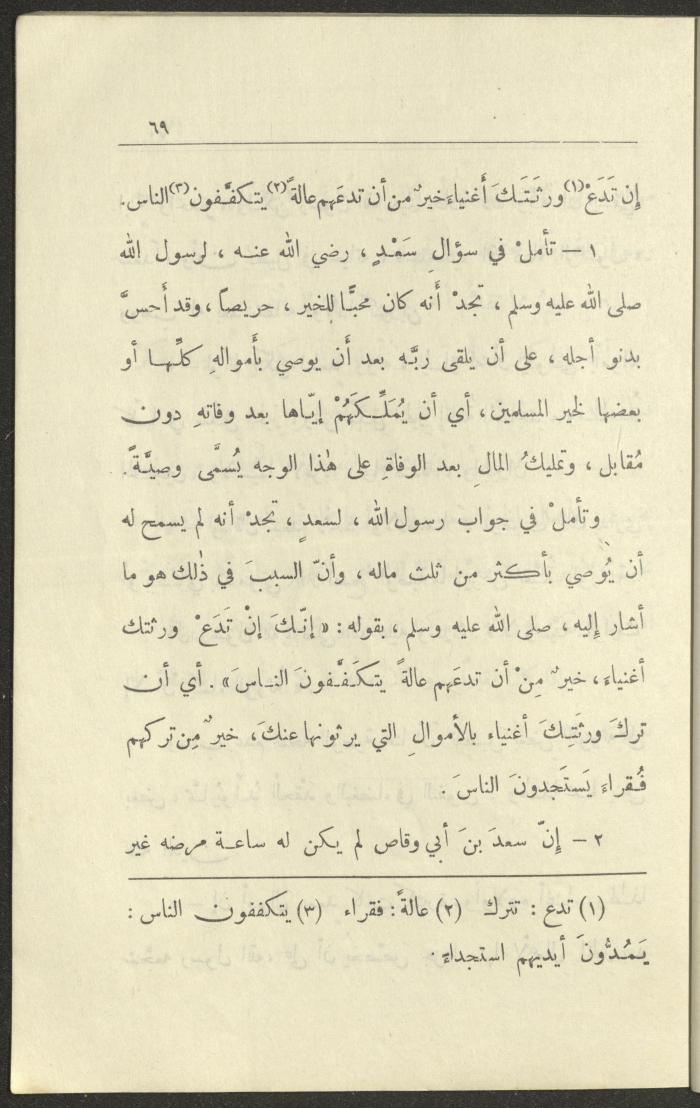 ٦٩
إِن تَدَعْ(١) ورثَتَكَ أَغنياءَ خيرٌ من أن تدعَهم عالةً(٢) يتكفَّفون(٣) الناس.
١ – تأملْ في سؤالِ سَعْدٍ ، رضي الله عنه ، لرسول الله
صلى الله عليه وسلم ، تجدْ أَنه كان محبًّا للخير ، حريصاً ، وقد أَحسَّ
بدنو أجله ، على أن يلقى ربَّه بعد أَن يوصي بأَموالهِ كلِّها أو
بعضها لخير المسلمين ، أي أن يُمَلِّكَهُمْ إيّاها بعد وفاتهِ دون
مُقابل ، وتمليكُ المالِ بعد الوفاةِ على هٰذا الوجه يُسمَّى وصيَّةً .
وتأملْ في جواب رسول الله ، لسعدٍ ، تجدْ أنه لم يسمح له
أن يُوصي بأكثر من ثلث ماله ، وأنّ السببَ في ذٰلك هو ما
أشار إِليه ، صلى الله عليه وسلم ، بقوله : « إنّكَ إنْ تَدَعْ ورثتك
أغنياءَ ، خيرٌ مِنْ أن تدعَهم عالةً يتكَفَّفونَ النـاسَ » . أي أن
تركَ ورثَتِكَ أغنياء بالأموالِ التي يرثونها عنكَ ، خيرٌ مِن تركهم
فُقراءَ يَستَجدونَ الناسَ .
٢ – إنّ سعدَ بنَ أبي وقاص لم يكن له ساعـة مرضه غير
(١) تدع : تترك (٢) عالةً : فقراء (٣) يتكففون الناس :
يَمُدُّونَ أيديهم استجداءً .